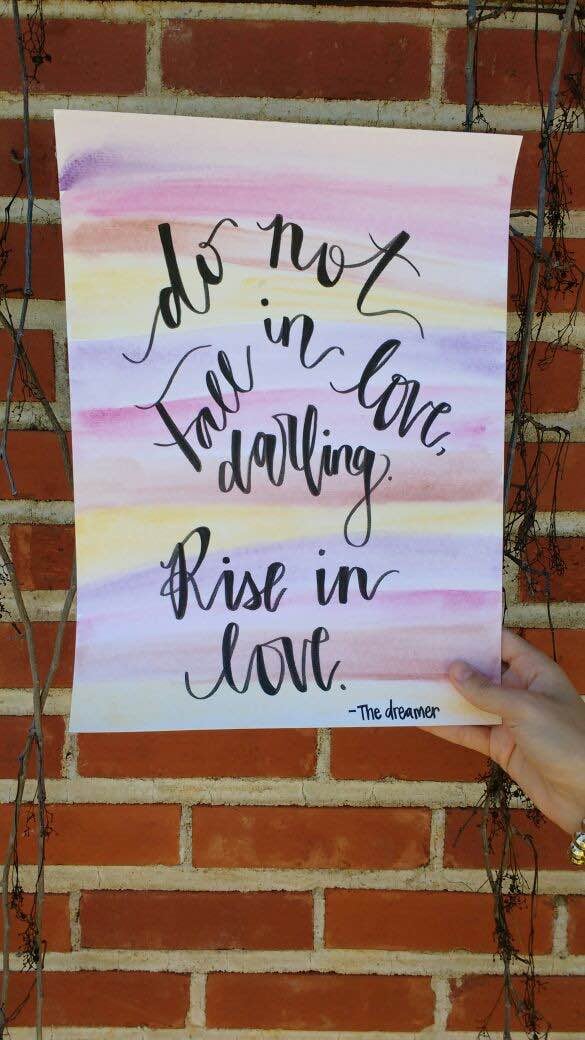 do not
Fall in love,
darling.
Rise in
love.
-The dreamer